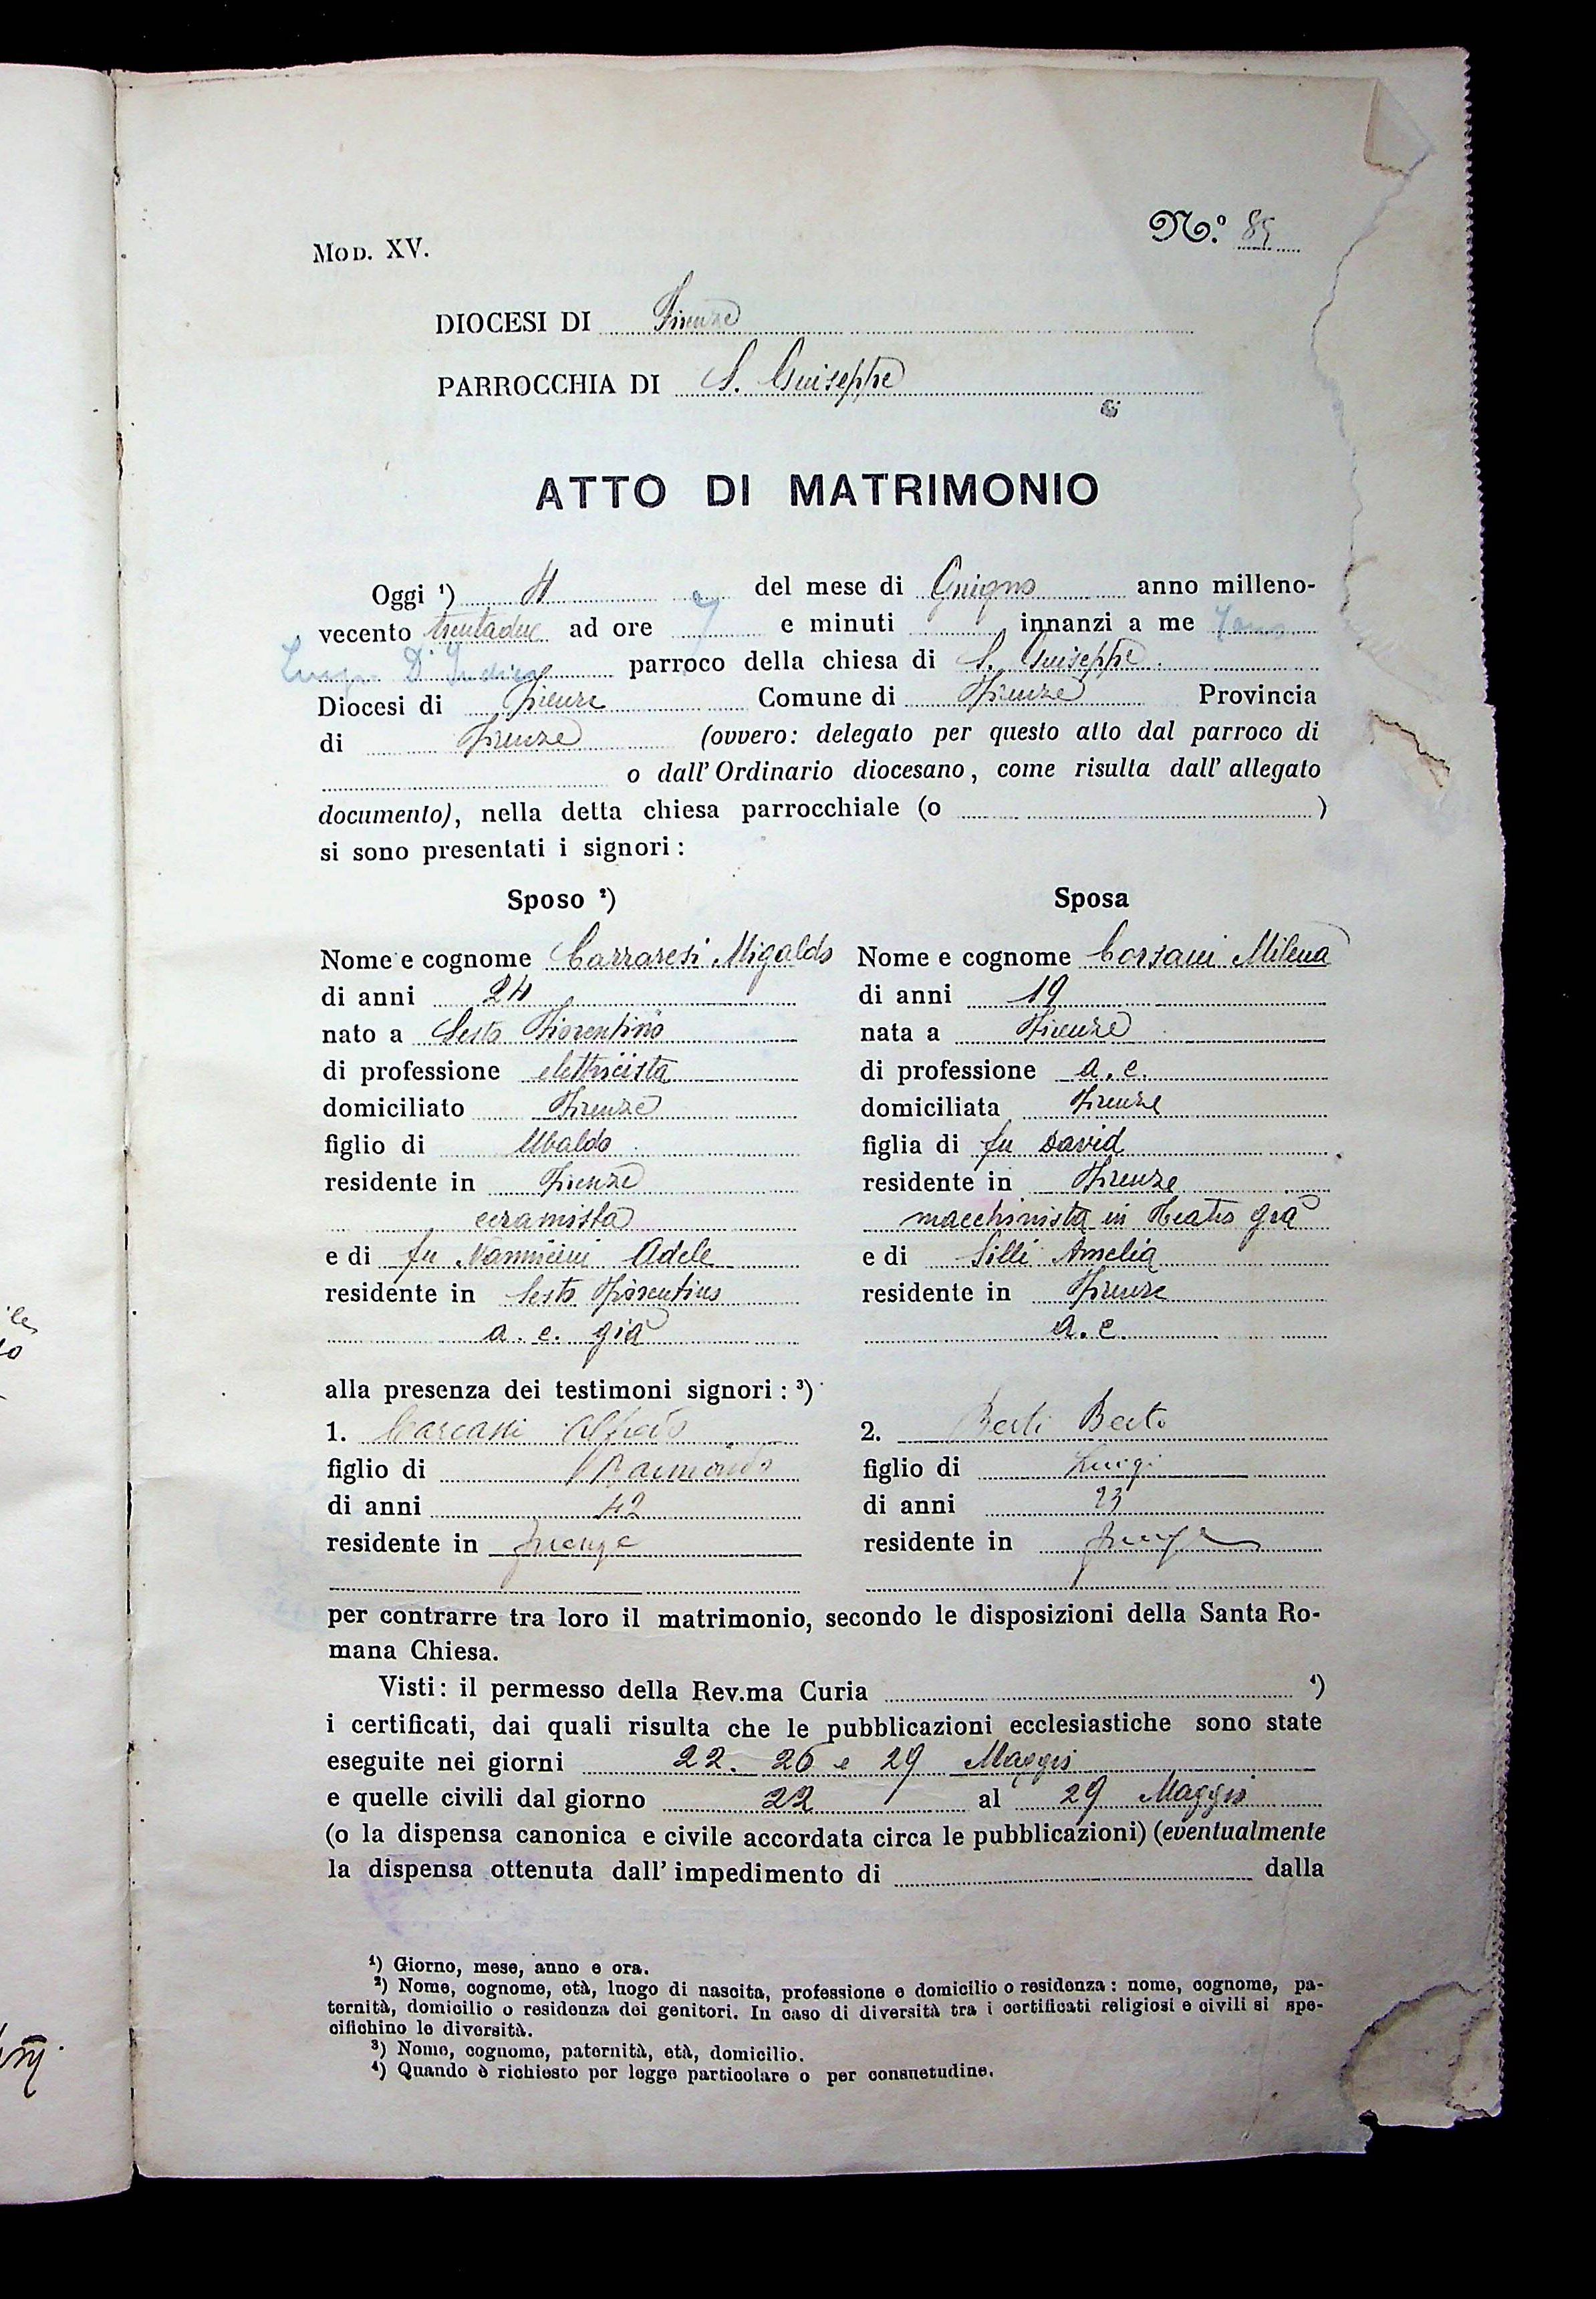 Mod. XV.
N.º 85
DIOCESI DI Firenze
PARROCCHIA DI S. Guiseppe
ATTO DI MATRIMONIO
Oggi ¹) 4 del mese di Guigno anno milleno-
vecento trentadue ad ore 7 e minuti innanzi a me
Luigi parroco della chiesa di S. Guiseppe
Diocesi di Firenze Comune di Firenze Provincia
di Firenze (ovvero: delegato per questo atto dal parroco di
o dall' Ordinario diocesano, come risulta dall' allegato
documento), nella detta chiesa parrocchiale (o )
si sono presentati i signori:
Sposo ²)
Nome e cognome Carraresi Migaldo
di anni 24
nato a Sesto Fiorentino
di professione elettricista
domiciliato Firenze
figlio di Ubaldo
residente in Firenze
ceramista
e di fu Vannicini Adele
residente in Sesto Fiorentino
a. c. già
Sposa
Nome e cognome Corsani Milena
di anni 19
nata a Firenze
di professione a. c.
domiciliata Firenze
figlia di fu David
residente in Firenze
macchinista in Teatro già
e di Silli Amelia
residente in Firenze
a. c.
alla presenza dei testimoni signori: ³)
1. Alfredo
figlio di Raimondo
di anni 42
residente in Firenze
2. Berti Berto
figlio di Luigi
di anni 23
residente in Firenze
per contrarre tra loro il matrimonio, secondo le disposizioni della Santa Ro-
mana Chiesa.
Visti: il permesso della Rev.ma Curia ⁴)
i certificati, dai quali risulta che le pubblicazioni ecclesiastiche sono state
eseguite nei giorni 22. 26 e 29 Maggio
e quelle civili dal giorno 22 al 29 Maggio
(o la dispensa canonica e civile accordata circa le pubblicazioni) (eventualmente
la dispensa ottenuta dall' impedimento di dalla
¹) Giorno, mese, anno e ora.
²) Nome, cognome, età, luogo di nascita, professione e domicilio o residenza: nome, cognome, pa-
ternità, domicilio o residenza dei genitori. In caso di diversità tra i certificati religiosi e civili si spe-
cifichino le diversità.
³) Nome, cognome, paternità, età, domicilio.
⁴) Quando è richiesto per legge particolare o per consuetudine.